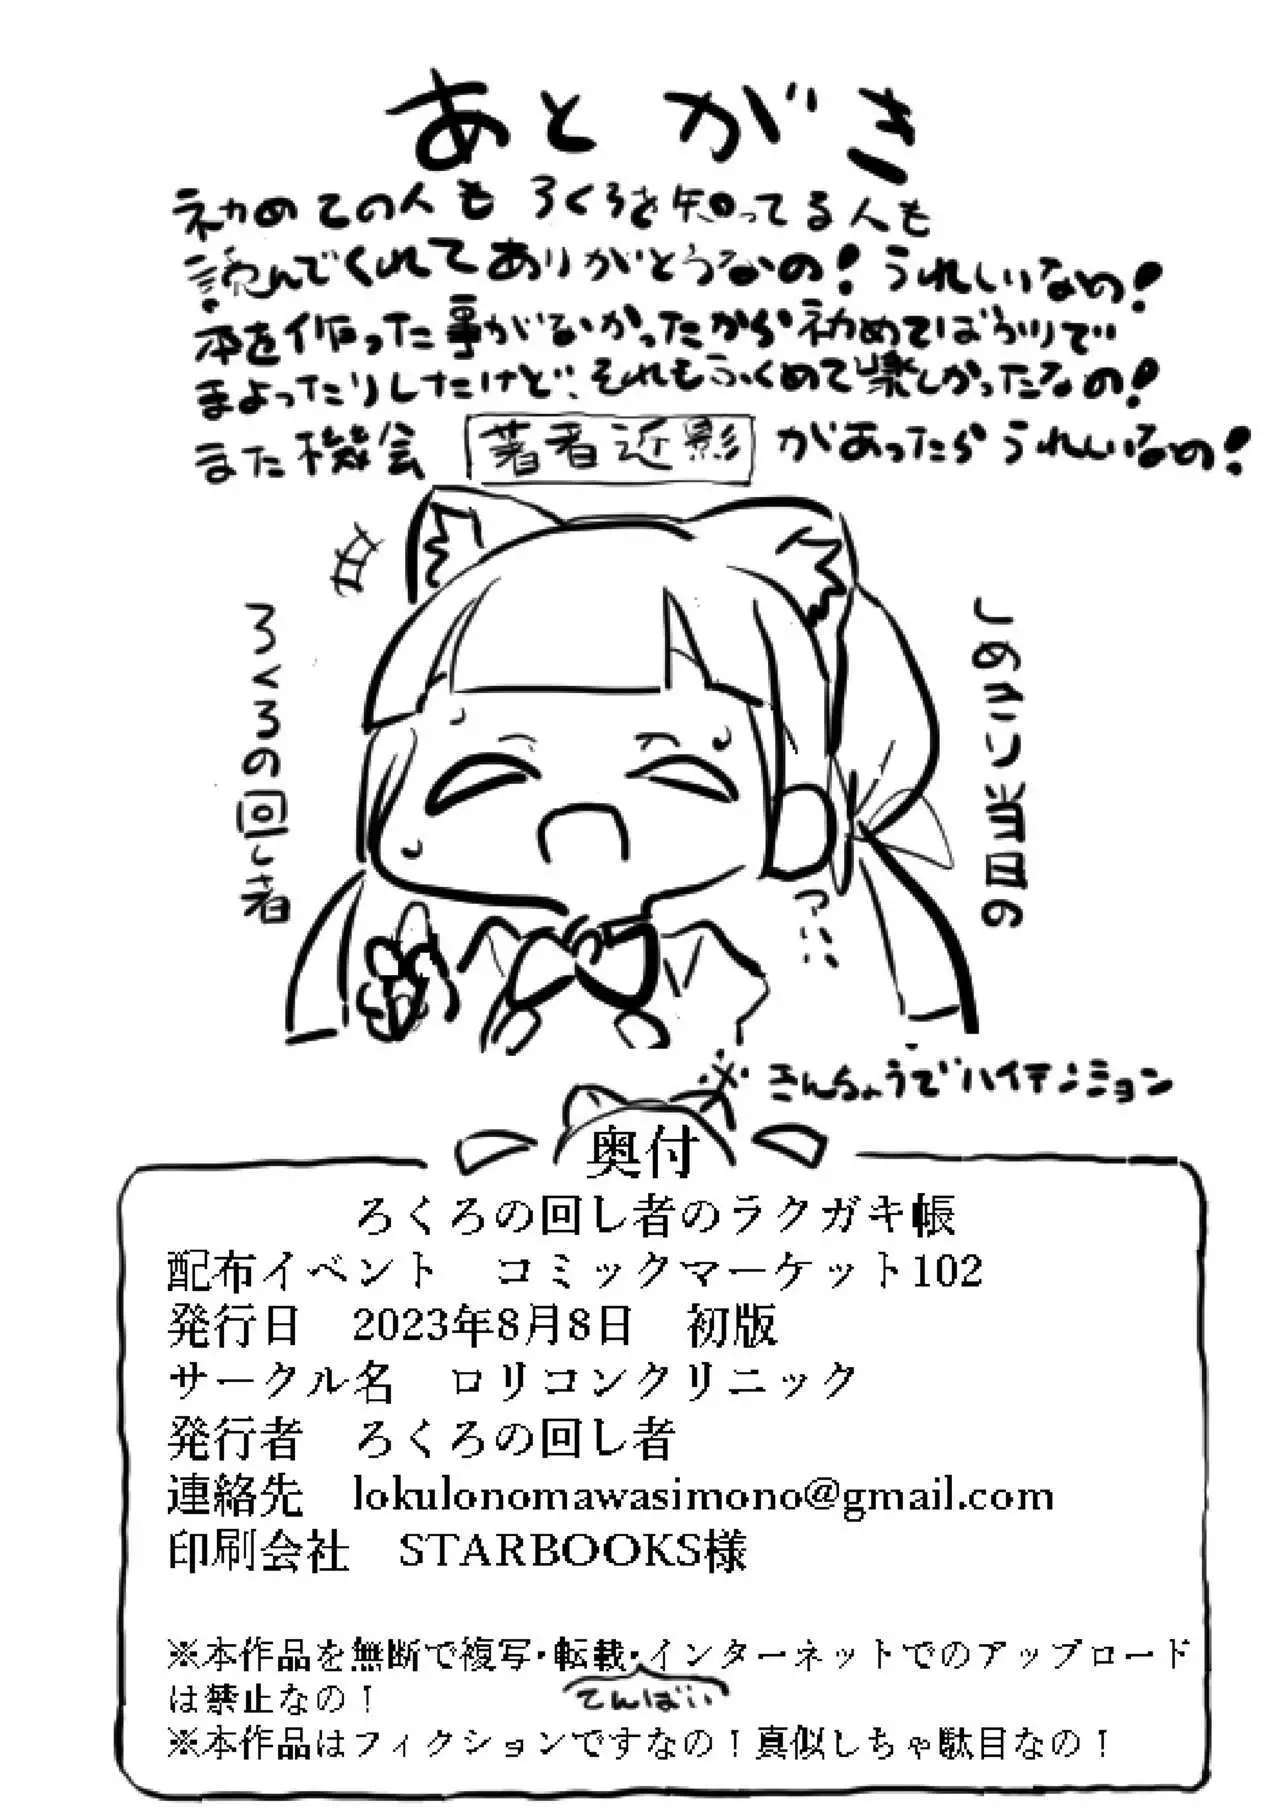 あとがき
初めての人も ろくろを知ってる人も
読んでくれてありがとうなの！うれしいなの！
本を作った事がなかったから初めてばかりで
まよったりしたけど、それもふくめて楽しかったなの！
また機会があったらうれしいなの！
著者近影
しめきり当日の
ろくろの回し者
※きんちょうでハイテンション
奥付
ろくろの回し者のラクガキ帳
配布イベント コミックマーケット102
発行日 2023年8月8日 初版
サークル名 ロリコンクリニック
発行者 ろくろの回し者
連絡先 lokulonomawasimono@gmail.com
印刷会社 STARBOOKS様
※本作品を無断で複写・転載・インターネットでのアップロード
てんばい
は禁止なの！
※本作品はフィクションですなの！真似しちゃ駄目なの！